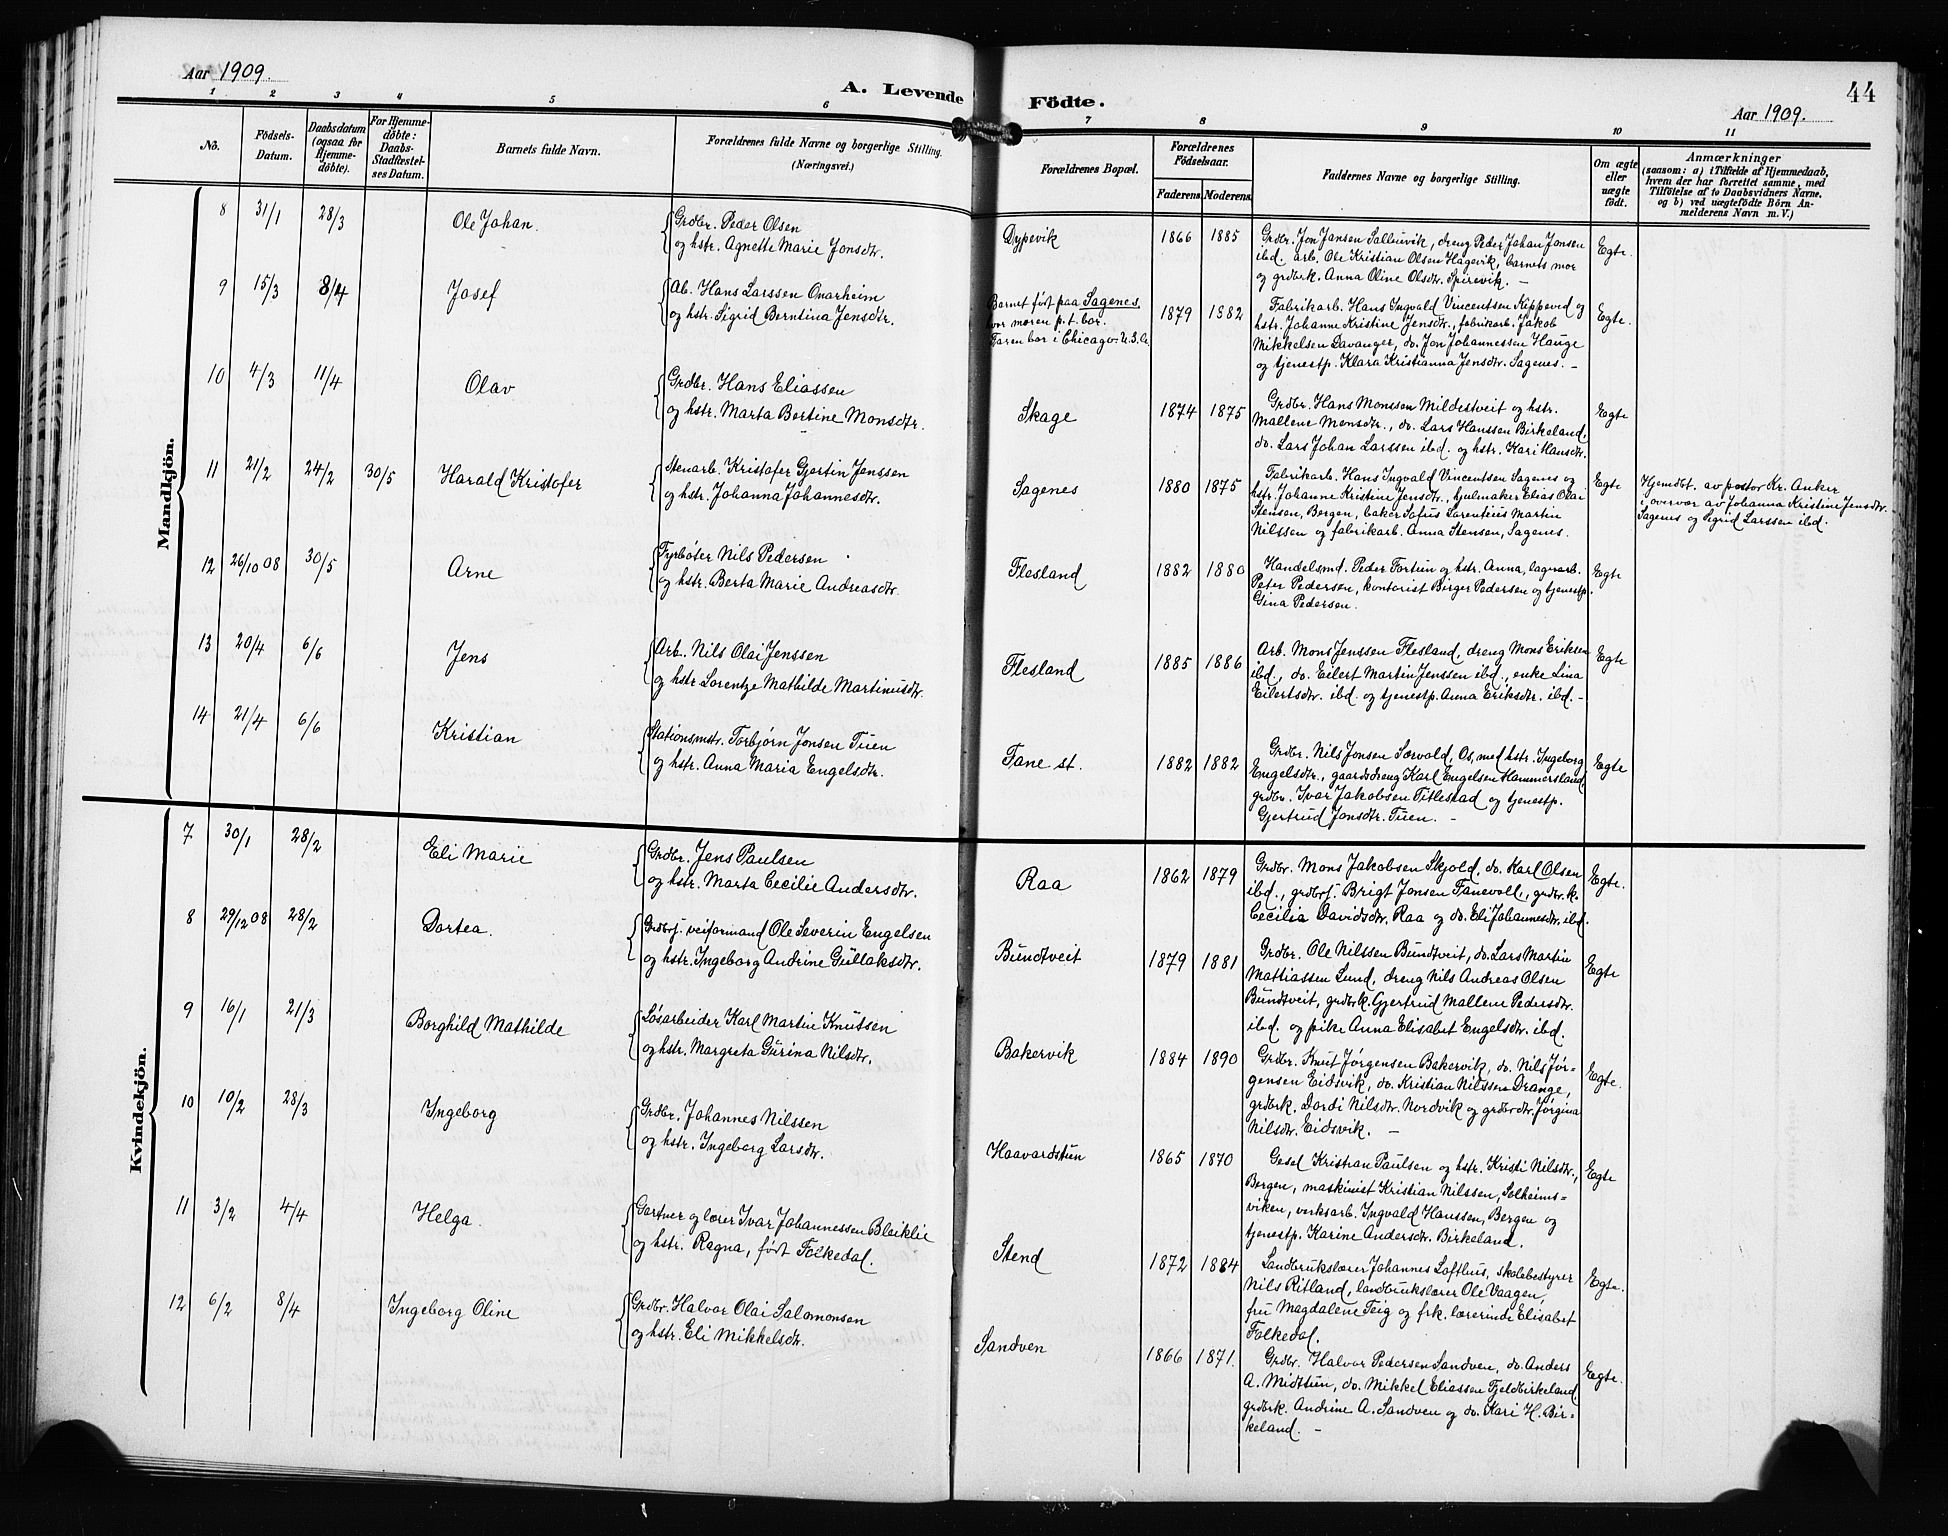 Aar 1909.
A. Levende Födte.
44
Aar 1909.
1 2 3 4 5 6 7 8 9 10 11
No.
Födsels-
Datum.
Daabsdatum
(ogsaa for
Hjemme-
döbte).
For Hjemme-
döbte:
Daabs-
Stadfæstel-
ses Datum.
Barnets fulde Navn.
Forældrenes fulde Navne og borgerlige Stilling.
(Næringsvei.)
Forældrenes Bopæl.
Forældrenes
Födselsaar.
Faderens. Moderens.
Faddernes Navne og borgerlige Stilling.
Om ægte
eller
uægte
födt.
Anmærkninger
(saasom: a) i Tilfælde af Hjemmedaab,
hvem der har forrettet samme, med
Tilföielse af to Daabsvidners Navne,
og b) ved uægtefödte Börn An-
melderens Navn m. V.)
Mandkjön.
8 31/1 28/3 Ole Johan.
Grdbr. Peder Olsen
og hstr. Agnette Marie Jonsdtr.
Dypevik 1866 1885
Grdbr. Jon Jansen Salluvik, dreng Peder Johan Jonsen
ibd. arb. Ole Kristian Olsen Hagevik, barnets mor
og grdbrk. Anna Oline Olsdtr. Spirevik. –
Egte.
9 15/3 8/4 Josef
Ab. Hans Larssen Onarheim
og hstr. Sigrid Berntina Jensdtr.
Barnet født paa Sagenes
hvor moren p.t. bor.
Faren bor i Chicago. U.S.A.
1879 1882
Fabrikarb. Hans Ingvald Vincentsen Kippeved og
hstr. Johanne Kristine Jensdtr., fabrikarb. Jakob
Mikkelsen Davanger, do. Jon Johannessen Hauge
og tjenestp. Klara Kristianna Jensdtr. Sagenes. –
Egte.
10 4/3 11/4 Olav
Grdbr. Hans Eliassen
og hstr. Marta Bertine Monsdtr.
Skage 1874 1875
Grdbr. Hans Monssen Mildestveit og hstr.
Mallene Monsdtr., do. Lars Hanssen Birkeland,
do. Lars Johan Larssen ibd. og hstr. Kari Hansdtr.
Egte
11 21/2 24/2 30/5 Harald Kristofer
Stenarb. Kristofer Gjertin Jenssen
og hstr. Johanna Johannesdtr.
Sagenes 1880 1875
Fabrikarb. Hans Ingvald Vincentsen Sagenes og
hstr. Johanne Kristine Jensdtr., hjulmaker Elias Olai
Stensen, Bergen, baker Sofus Larentius Martin
Nilssen og fabrikarb. Anna Stensen, Sagenes.
Egte
Hjemdbt. av pastor Kr. Anker
i overvær av Johanna Kristine Jensdtr.
Sagenes og Sigrid Larssen ibd.
12 26/10 08 30/5 Arne
Fyrbøter Nils Pedersen
og hstr. Berta Marie Andreasdtr.
Flesland 1882 1880
Handelsmd. Peder Fortun og hstr. Anna, lagerarb.
Peter Pedersen, kontorist Birger Pedersen og tjenestp.
Gina Pedersen.
Egte
13 20/4 6/6 Jens
Arb. Nils Olai Jenssen
og hstr Lorentze Mathilde Martinusdtr.
Flesland 1885 1886
Arb. Mons Jenssen Flesland, dreng Mons Eriksen
ibd., do. Eilert Martin Jenssen ibd., enke Lina
Eilertsdtr. ibd. og tjenestp. Anna Eriksdtr. ibd. –
Egte
14 21/4 6/6 Kristian
Stationsmstr. Torbjørn Jonsen Tuen
og hstr. Anna Maria Engelsdtr.
Fane st. 1882 1882
Grdbr. Nils Jonsen Særvold, Os, med hstr. Ingeborg
Engelsdtr., gaardsdreng Karl Engelsen Hammersland,
grdbr. Ivar Jakobsen Titlestad og tjenestp.
Gjertrud Jonsdtr. Tuen. –
Egte
Kvindekjön.
7 30/1 28/2 Eli Marie
Grdbr. Jens Paulsen
og hstr. Marta Cecilie Andersdtr.
Raa 1862 1879
Grdbr. Mons Jakobsen Skjold, do. Karl Olsen
ibd., grdbrs. Brigt Jonsen Fanevoll., grdbrk.
Cecilia Davidsdtr. Raa og do. Eli Johannesdtr. ibd.
Egte.
8 29/12 08 28/2 Dortea.
Grdbrs. veiformand Ole Severin Engelsen
og hstr. Ingeborg Andrine Gullaksdtr.
Bundtveit 1879 1881
Grdbr. Ole Nilssen Bundtveit, do. Lars Martin
Mattiassen Lund, dreng Nils Andreas Olsen
Bundtveit, grdbrk. Gjertrud Mallene Pedersdtr.
ibd. og pike Anna Elisabet Engelsdtr. ibd.
Egte
9 16/1 21/3 Borghild Mathilde
Løsarbeider Karl Martin Knutsen
og hstr. Margreta Gurina Nilsdtr.
Bakervik 1884 1890
Grdbr. Knut Jørgensen Bakervik, do. Nils Jør-
gensen Eidsvik, do. Kristian Nilssen Drange,
grdbrk. Dordi Nilsdtr. Nordvik og grdbrdtr. Jørgina
Nilsdtr. Eidsvik. –
Egte.
10 10/2 28/3 Ingeborg
Grdbr. Johannes Nilssen
og hstr. Ingeborg Larsdtr.
Haavardstun 1865 1870
Gesel Kristian Paulsen og hstr. Kristi Nilsdtr.,
Bergen, maskinist Kristian Nilssen, Solheims-
viken, verksarb. Ingvald Hanssen, Bergen og
tjenestp. Karine Andersdtr. Birkeland.
Egte
11 3/2 4/4 Helga.
Gartner og lærer Ivar Johannessen Bleiklie
og hstr. Ragna, født Folkedal.
Stend 1872 1884
Landbrukslærer Johannes Lofthus, skolebestyrer
Nils Ritland, landbrukslærer Ole Vaagen,
fru Magdalene Teig og frk. lærerinde Elisabet
Folkedal.
Egte.
12 6/2 8/4 Ingeborg Oline
Grdbr. Halvor Olai Salomonsen
og hstr. Eli Mikkelsdtr.
Sandven 1866 1871.
Grdbr. Halvor Pedersen Sandven, do. Anders
A. Midtsun, do. Mikkel Eliassen Fjeldbirkeland,
grdbrk. Andrine A. Sandven og do. Kari H. Bir-
keland. –
Egte.